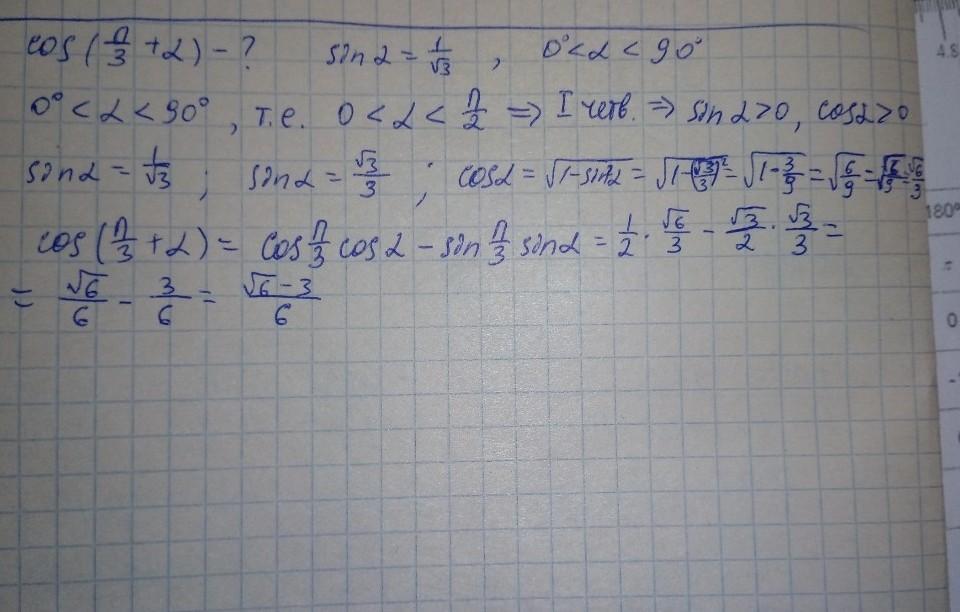 cos(π/3 + α) - ? sin α = 1/√3 , 0° < α < 90°
0° < α < 90° , т.е. 0 < α < π/2 ⇒ I четв. ⇒ sin α > 0, cos α > 0
sin α = 1/√3 ; sin α = √3/3 ; cos α = √(1-sin²α) = √(1-(√3/3)²) = √(1-3/9) = √(6/9) = √6/√9 = √6/3
cos(π/3 + α) = cos π/3 cos α - sin π/3 sin α = 1/2 · √6/3 - √3/2 · √3/3 =
= √6/6 - 3/6 = (√6 - 3)/6
4.8
180°
=
0